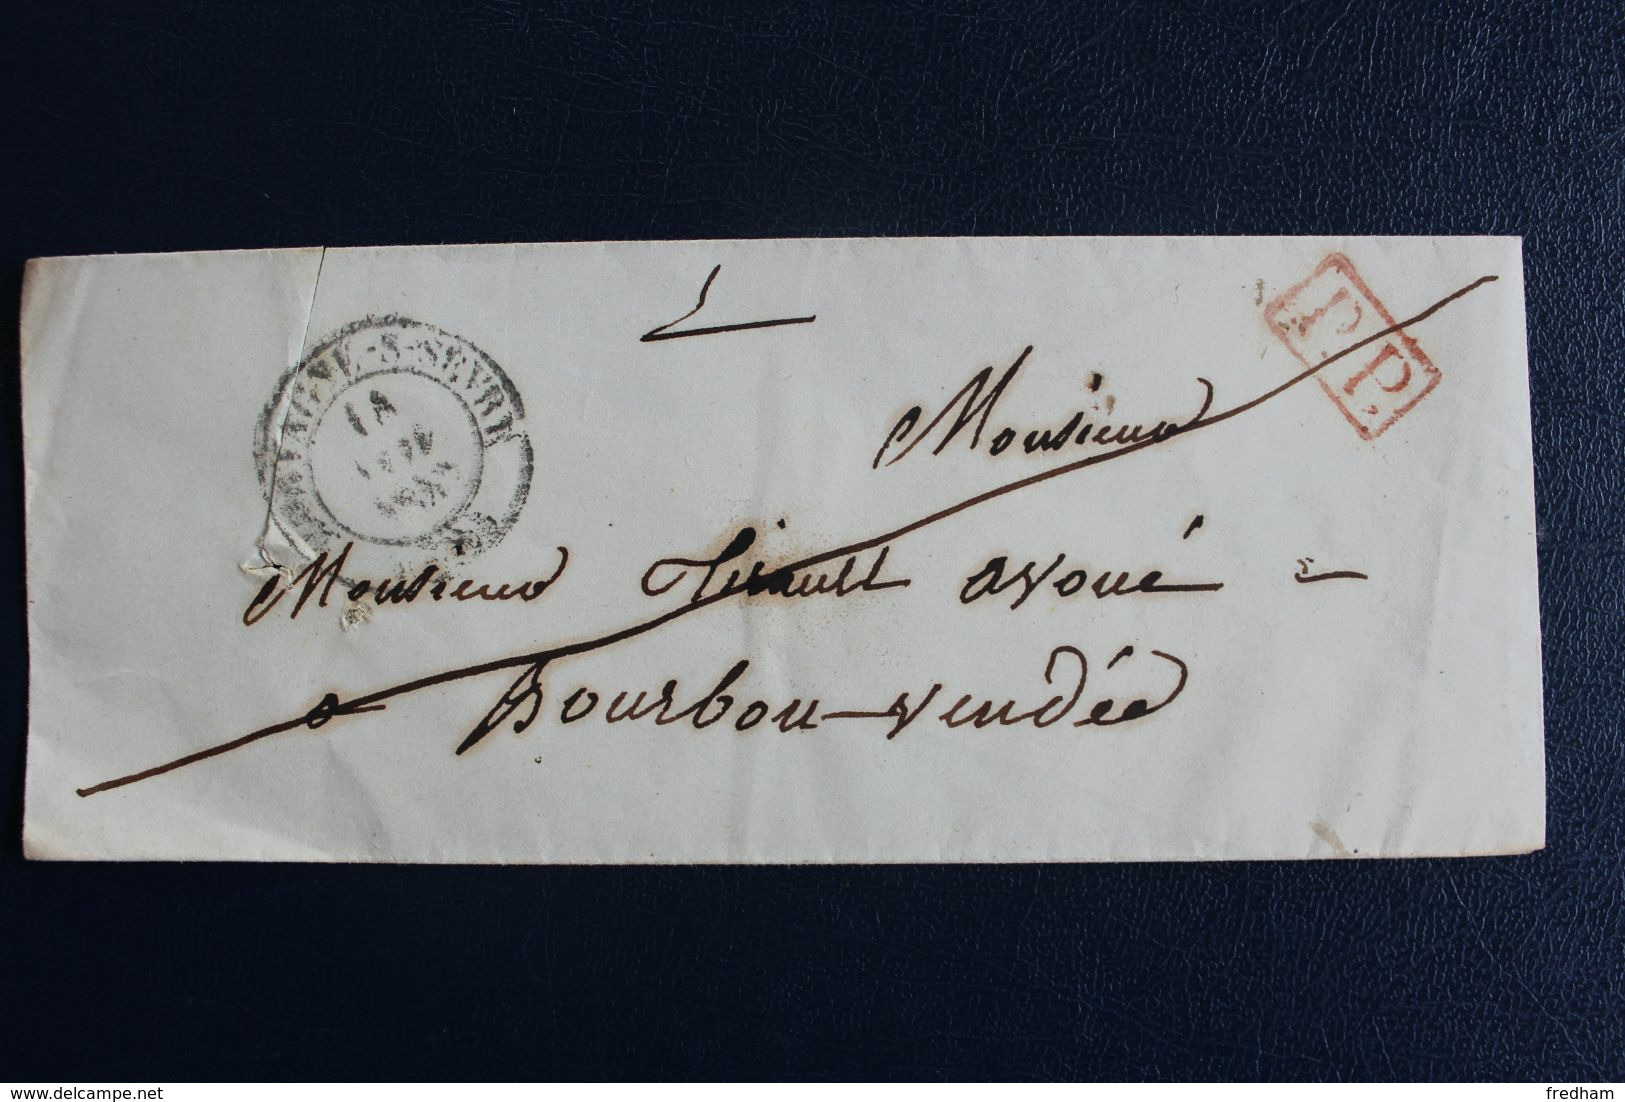 P.P.
S-SEVRE
Monsieur
Monsieur avoué
a Bourbon-vendée
www.delcampe.net
fredham